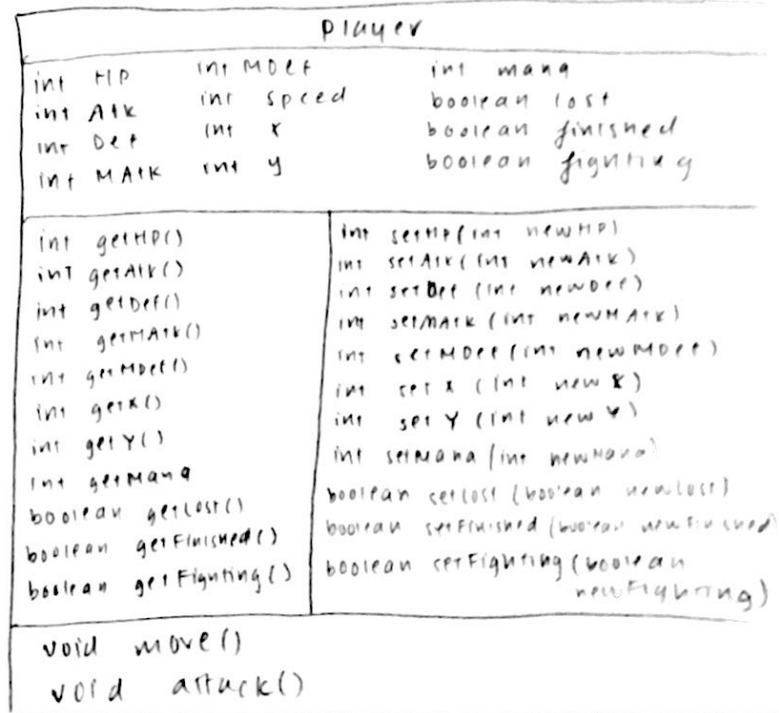 Player
int HP int MDef int mana
int Atk int speed boolean lost
int Def int x boolean finished
int MAtk int y boolean fighting
int getHP()
int getAtk()
int getDef()
int getMAtk()
int getMDef()
int getX()
int getY()
int getMana
boolean getLost()
boolean getFinished()
boolean getFighting()
int setHp(int newHP)
int setAtk(int newAtk)
int setDef (int newDef)
int setMAtk (int newMAtk)
int setMDef (int newMDef)
int set X (int new X)
int set Y (int new Y)
int setMana (int newMana)
boolean setLost (boolean newLost)
boolean setFinished (boolean newFinished)
boolean setFighting (boolean
newFighting)
void move()
void attack()